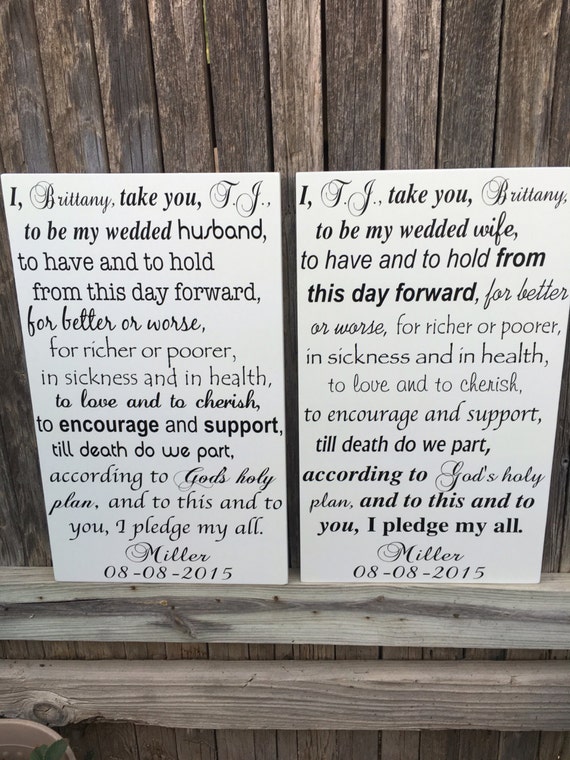 I, Brittany, take you, T.J.,
to be my wedded husband,
to have and to hold
from this day forward,
for better or worse,
for richer or poorer,
in sickness and in health,
to love and to cherish,
to encourage and support,
till death do we part,
according to God's holy
plan, and to this and to
you, I pledge my all.
Miller
08-08-2015
I, T.J., take you, Brittany,
to be my wedded wife,
to have and to hold from
this day forward, for better
or worse, for richer or poorer,
in sickness and in health,
to love and to cherish,
to encourage and support,
till death do we part,
according to God's holy
plan, and to this and to
you, I pledge my all.
Miller
08-08-2015